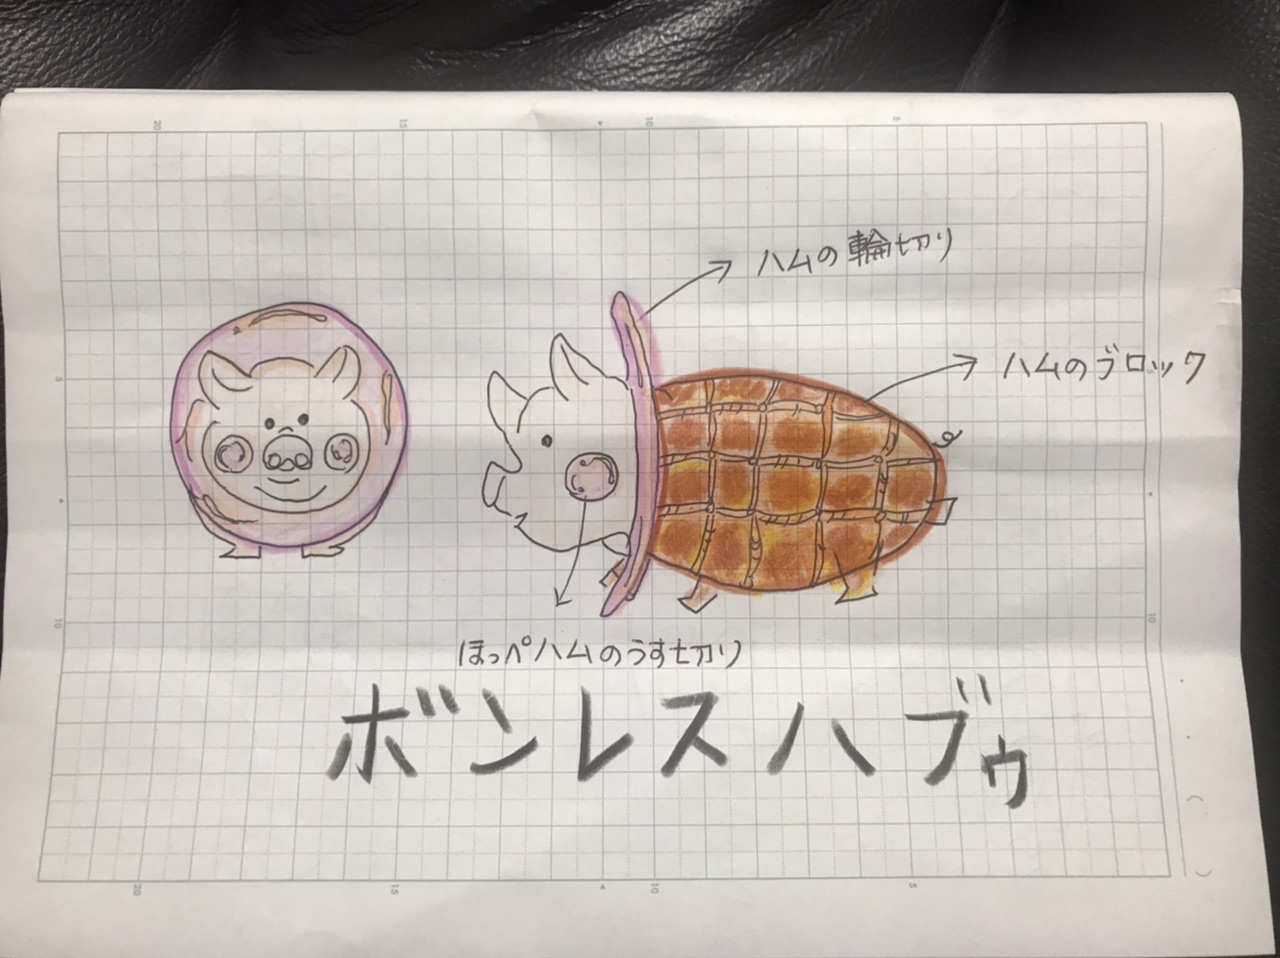 20 15 10 5
ハムの輪切り
ハムのブロック
ほっぺハムのうす切り
ボンレスハブゥ
20 15 10 5